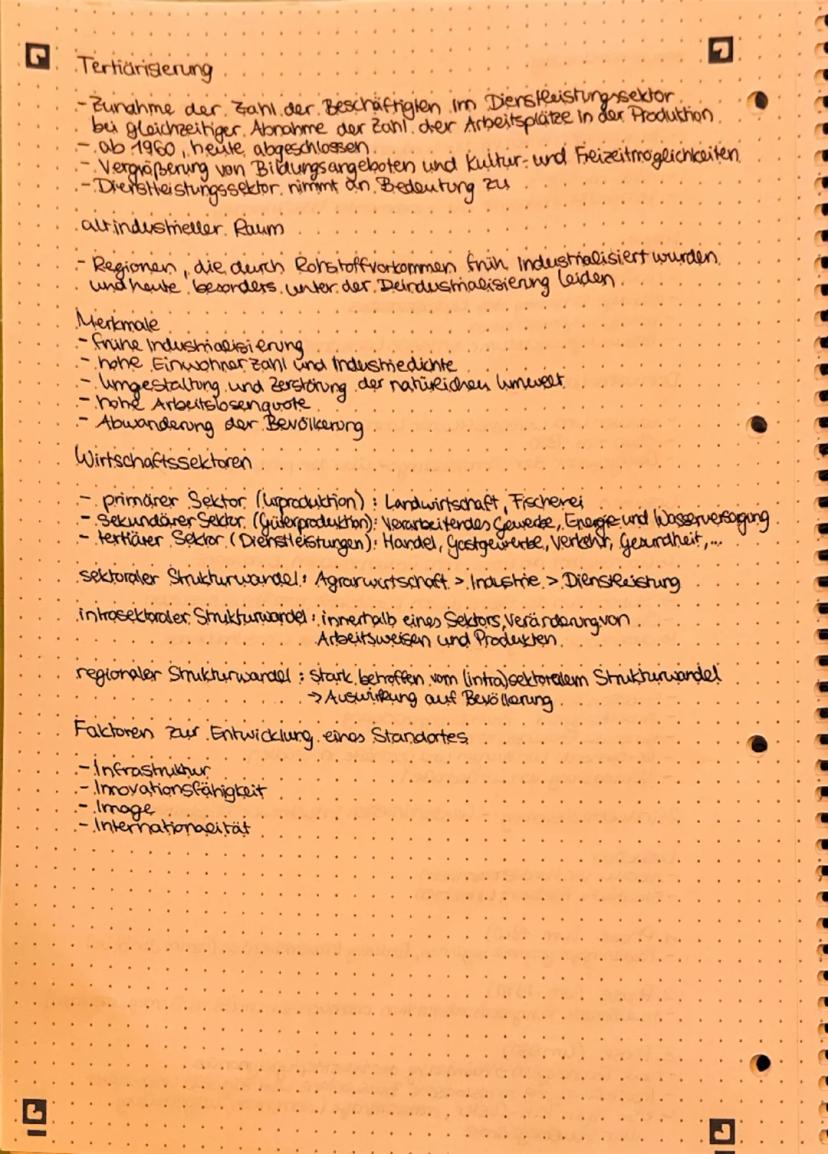 Tertiärisierung
- Zunahme der Zahl der Beschäftigten im Dienstleistungssektor
bei gleichzeitiger Abnahme der Zahl der Arbeitsplätze in der Produktion
- ab 1960, heute abgeschlossen
- Vergrößerung von Bildungsangeboten und Kultur- und Freizeitmöglichkeiten
- Dienstleistungssektor nimmt an Bedeutung zu
altindustrieller Raum
- Regionen, die durch Rohstoffvorkommen früh industrialisiert wurden
und heute besonders unter der Deindustrialisierung leiden
Merkmale
- frühe Industrialisierung
- hohe Einwohnerzahl und Industriedichte
- Umgestaltung und Zerstörung der natürlichen Umwelt
- hohe Arbeitslosenquote
- Abwanderung der Bevölkerung
Wirtschaftssektoren
- primärer Sektor (Urproduktion): Landwirtschaft, Fischerei
- sekundärer Sektor (Güterproduktion): Verarbeitendes Gewerbe, Energie und Wasserversogung
- tertiärer Sektor (Dienstleistungen): Handel, Gastgewerbe, Verkehr, Gesundheit,...
sektoraler Strukturwandel: Agrarwirtschaft > Industrie > Dienstleistung
intrasektoraler Strukturwandel: innerhalb eines Sektors, Veränderung von
Arbeitsweisen und Produkten
regionaler Strukturwandel: stark betroffen vom (intra)sektoralem Strukturwandel
→ Auswirkung auf Bevölkerung
Faktoren zur Entwicklung eines Standortes
- Infrastruktur
- Innovationsfähigkeit
- Image
- Internationalität